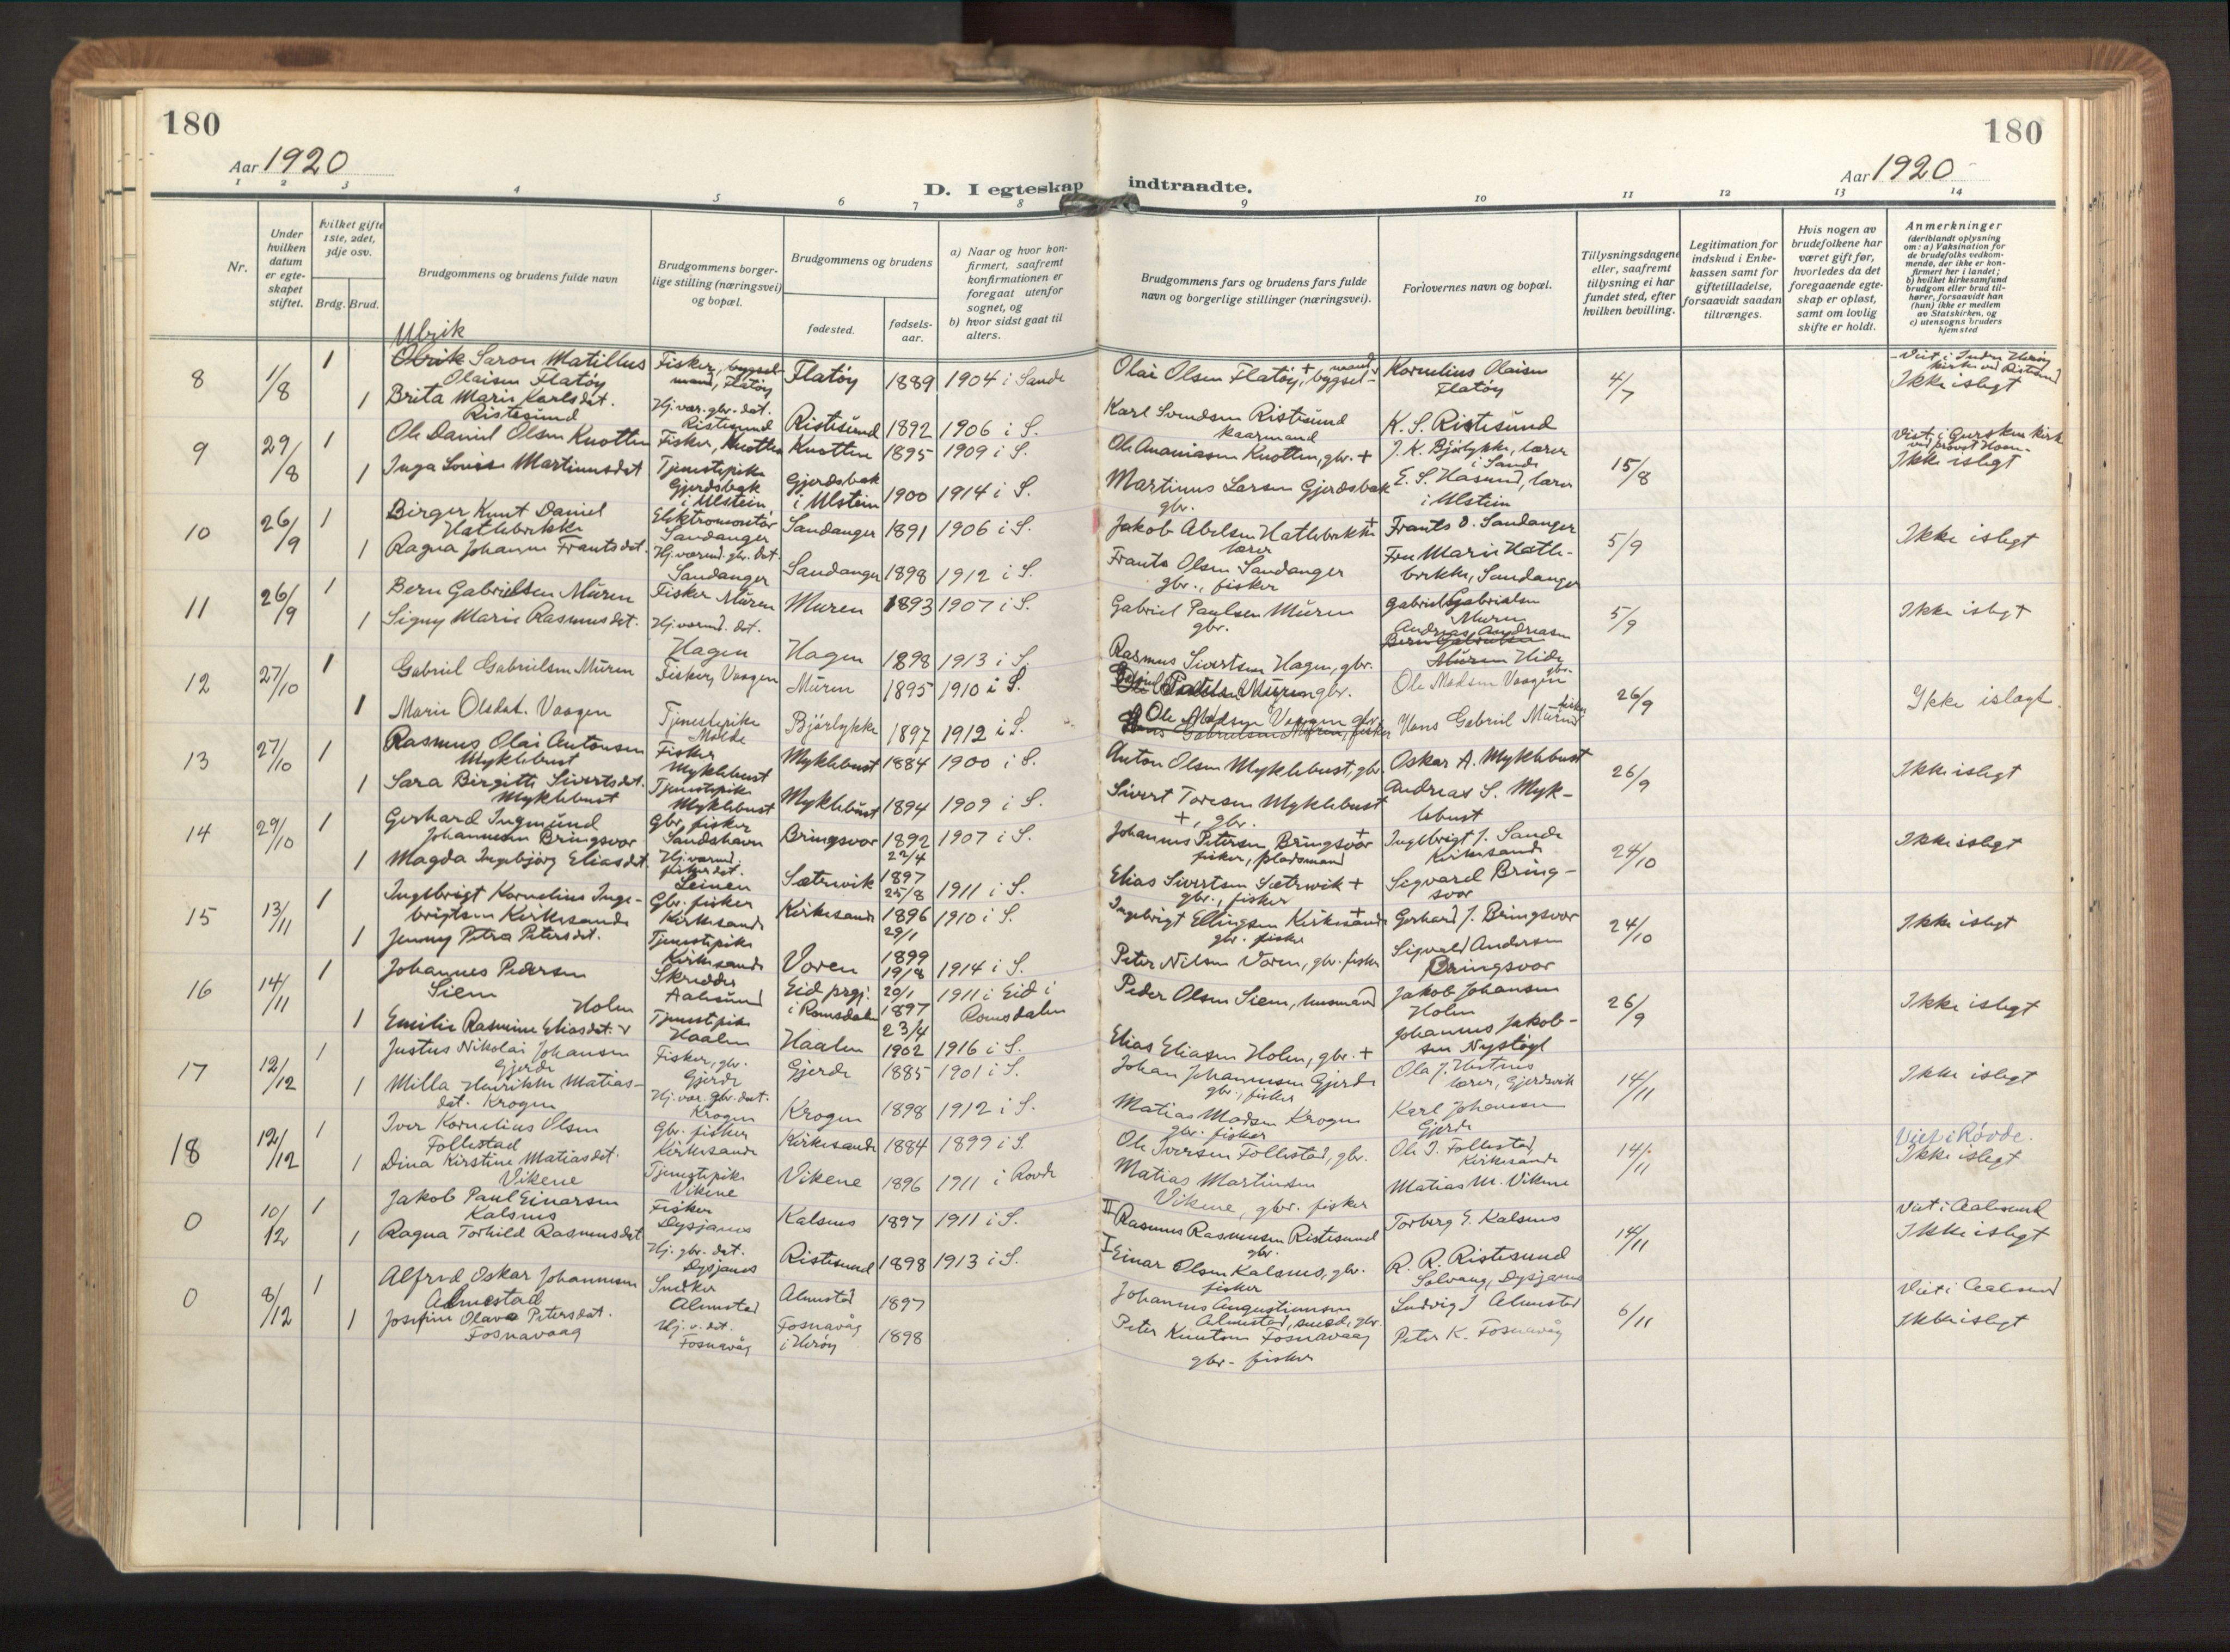 180
180
Aar 1920
Aar 1920
D. I egteskap indtraadte.
1 2 3 4 5 6 7 8 9 10 11 12 13 14
Nr.
Under hvilken datum er egte-skapet stiftet.
hvilket gifte 1ste, 2det, 3dje osv.
Brdg. Brud.
Brudgommens og brudens fulde navn
Brudgommens borger-lige stilling (næringsvei) og bopæl.
Brudgommens og brudens
fødested.
fødsels-aar.
a) Naar og hvor kon-firmert, saafremt konfirmationen er foregaat utenfor sognet, og
b) hvor sidst gaat til alters.
Brudgommens fars og brudens fars fulde navn og borgerlige stillinger (næringsvei).
Forlovernes navn og bopæl.
Tillysningsdagene eller, saafremt tillysning ei har fundet sted, efter hvilken bevilling.
Legitimation for indskud i Enke-kassen samt for giftetilladelse, forsaavidt saadan tiltrænges.
Hvis nogen av brudefolkene har været gift før, hvorledes da det foregaaende egte-skap er opløst, samt om lovlig skifte er holdt.
Anmerkninger
(deriblandt oplysning om: a) Vaksination for de brudefolks vedkom-mende, der ikke er kon-firmert her i landet; b) hvilket kirkesamfund brudgom eller brud til-hører, forsaavidt han (hun) ikke er medlem av Statskirken, og c) utensogns bruders hjemsted
Ulrik
8 1/8 1 Olrik Saron Matillus Olaisen Flatøy Fisker, bygsel-mand, Flatøy Flatøy 1889 1904 i Sande Olai Olsen Flatøy +, bygsel-mand Kornelius Olaisen Flatøy 4/7 Viet i Indre Herøy kirke ved Ristesund Ikke islegt
1 Brita Marie Karlsdat. Ristesund Hj.vær. gbr. dat. Ristesund Ristesund 1892 1906 i S. Karl Svendsen Ristesund kaarmand K. S. Ristesund
9 29/8 1 Ole Daniel Olsen Knotten Fisker, Knotten Knotten 1895 1909 i S. Ole Ananiasen Knotten, gbr. + J. K. Bjørlykke, lærer i Sande 15/8 Viet i Gursken kirke Ikke islegt
1 Inga Lovise Martinusdat Tjenestepike Gjerdsbak i Ulstein Gjerdsbak i Ulstein 1900 1914 i S. Martinus Larsen Gjerdsbak gbr. E. S. Hasund, lærer i Ulstein
10 26/9 1 Birger Knut Daniel Hatlebrekke Elektromontør Sandanger Sandanger 1891 1906 i S. Jakob Abelsen Hatlebrekke + lærer Frants O. Sandanger 5/9 Ikke islegt
1 Ragna Johanne Frantsdat. Hj.værend. gbr. dat. Sandanger Sandanger 1898 1912 i S. Frants Olsen Sandanger gbr., fisker Fru Marie Hatle-brekke, Sandanger
11 26/9 1 Bern Gabrielsen Muren Fisker Muren Muren 1893 1907 i S. Gabriel Paulsen Muren gbr. Gabriel Gabrielsen Muren 5/9 Ikke islegt
1 Signy Marie Rasmusdat. Hj.værend. dat. Hagen Hagen 1898 1913 i S. Rasmus Sivertsen Hagen, gbr. Andreas Andreasen
12 27/10 1 Gabriel Gabrielsen Muren Fisker, Vaagen Muren 1895 1910 i S. Gabriel Paulsen Muren gbr. Ole Madsen Vaagen gbr. 26/9 Ikke islegt.
1 Marie Olsdat. Vaagen Tjenestepike Molde Bjørlykke 1897 1912 i S. Ole Madsen Vaagen gbr. Hans Gabriel Muren fisker
13 27/10 1 Rasmus Olai Antonsen Myklebust Fisker Myklebust Myklebust 1884 1900 i S. Anton Olsen Myklebust, gbr. Oskar A. Myklebust 26/9 Ikke islegt
1 Sara Birgitte Sivertsdat. Myklebust Tjenestepike Myklebust Myklebust 1894 1909 i S. Sivert Toresen Myklebust +, gbr. Andreas S. Myk-lebust
14 29/10 1 Gerhard Ingmund Johannesen Bringsvor Gbr. fisker Sandshavn Bringsvor 1892 22/4 1907 i S. Johannes Petersen Bringsvor + fisker, pladsmand Ingebrigt J. Sande Kirkesande 24/10 Ikke islegt
1 Magda Ingebjørg Eliasdat. Hj.værend. fiskerdat. Leinen Sætrevik 1897 25/8 1911 i S. Elias Sivertsen Sætrevik + gbr., fisker Sigvard Bring-svor
15 13/11 1 Ingebrigt Kornelius Inge-brigtsen Kirkesande Gbr. fisker Kirkesande Kirkesande 1896 29/1 1910 i S. Ingebrigt Ellingsen Kirkesande + gbr. fisker Gerhard J. Bringsvor 24/10 Ikke islegt
1 Jenny Petra Petersdat. Tjenestepike Kirkesande Voren 1899 19/8 1914 i S. Peter Nilsen Voren, gbr. fisker Sigvald Andersen Bringsvor
16 14/11 1 Johannes Pedersen Siem Skrædder Aalesund Eid prgj. i Romsdalen 20/1 1897 1911 i Eid i Romsdalen Peder Olsen Siem, husmand Jakob Johansen Holm 26/9 Ikke islegt
1 Emilie Rasmine Eliasdat. Holm Tjenestepike Haalen Haalen 23/4 1902 1916 i S. Elias Eliasen Holm, gbr. + Johannes Jakob-sen Nystøyl
17 12/12 1 Justus Nikolai Johansen Gjerde Fisker, gbr. Gjerde Gjerde 1885 1901 i S. Johan Johannesen Gjerde gbr., fisker Ola J. lærer, Gjerdsvik 14/11 Ikke islegt
1 Milla Henrikke Matias-dat. Krogen Hj.vær. gbr. dat. Krogen Krogen 1898 1912 i S. Matias Madsen Krogen gbr. fisker Karl Johansen Gjerde
18 12/12 1 Iver Kornelius Olsen Follestad Gbr. fisker Kirkesande Kirkesande 1884 1899 i S. Ole Iversen Follestad, gbr. Ole I. Follestad, Kirkesande 14/11 Viet i Rovde. Ikke islegt
1 Dina Kirstine Matiasdat. Vikene Tjenestepike Vikene Vikene 1896 1911 i Rovde Matias Martinsen Vikene, gbr. fisker Matias M. Vikene
0 10/12 1 Jakob Paul Einarsen Kalsnes Fisker Dysjanes Kalsnes 1897 1911 i S. II Rasmus Rasmussen Ristesund gbr. Torberg E. Kalsnes 14/11 Viet i Aalesund Ikke islegt
1 Ragna Torhild Rasmusdat Hj. gbr. dat. Dysjanes Ristesund 1898 1913 i S. I Einar Olsen Kalsnes, gbr. fisker R. R. Ristesund Solvang, Dysjanes
0 8/12 1 Alfred Oskar Johannesen Almestad Snedker Almestad Almestad 1897 Johannes Augustinussen Almestad, smed, gbr. Ludvig J Almestad 6/11 Viet i Aalesund Ikke islegt
1 Josefine Olava Petersdat. Fosnavaag Hj. v. dat. Fosnavåg Fosnavåg i Herøy 1898 Peter Knutsen Fosnavaag gbr. fisker Peter K. Fosnavåg